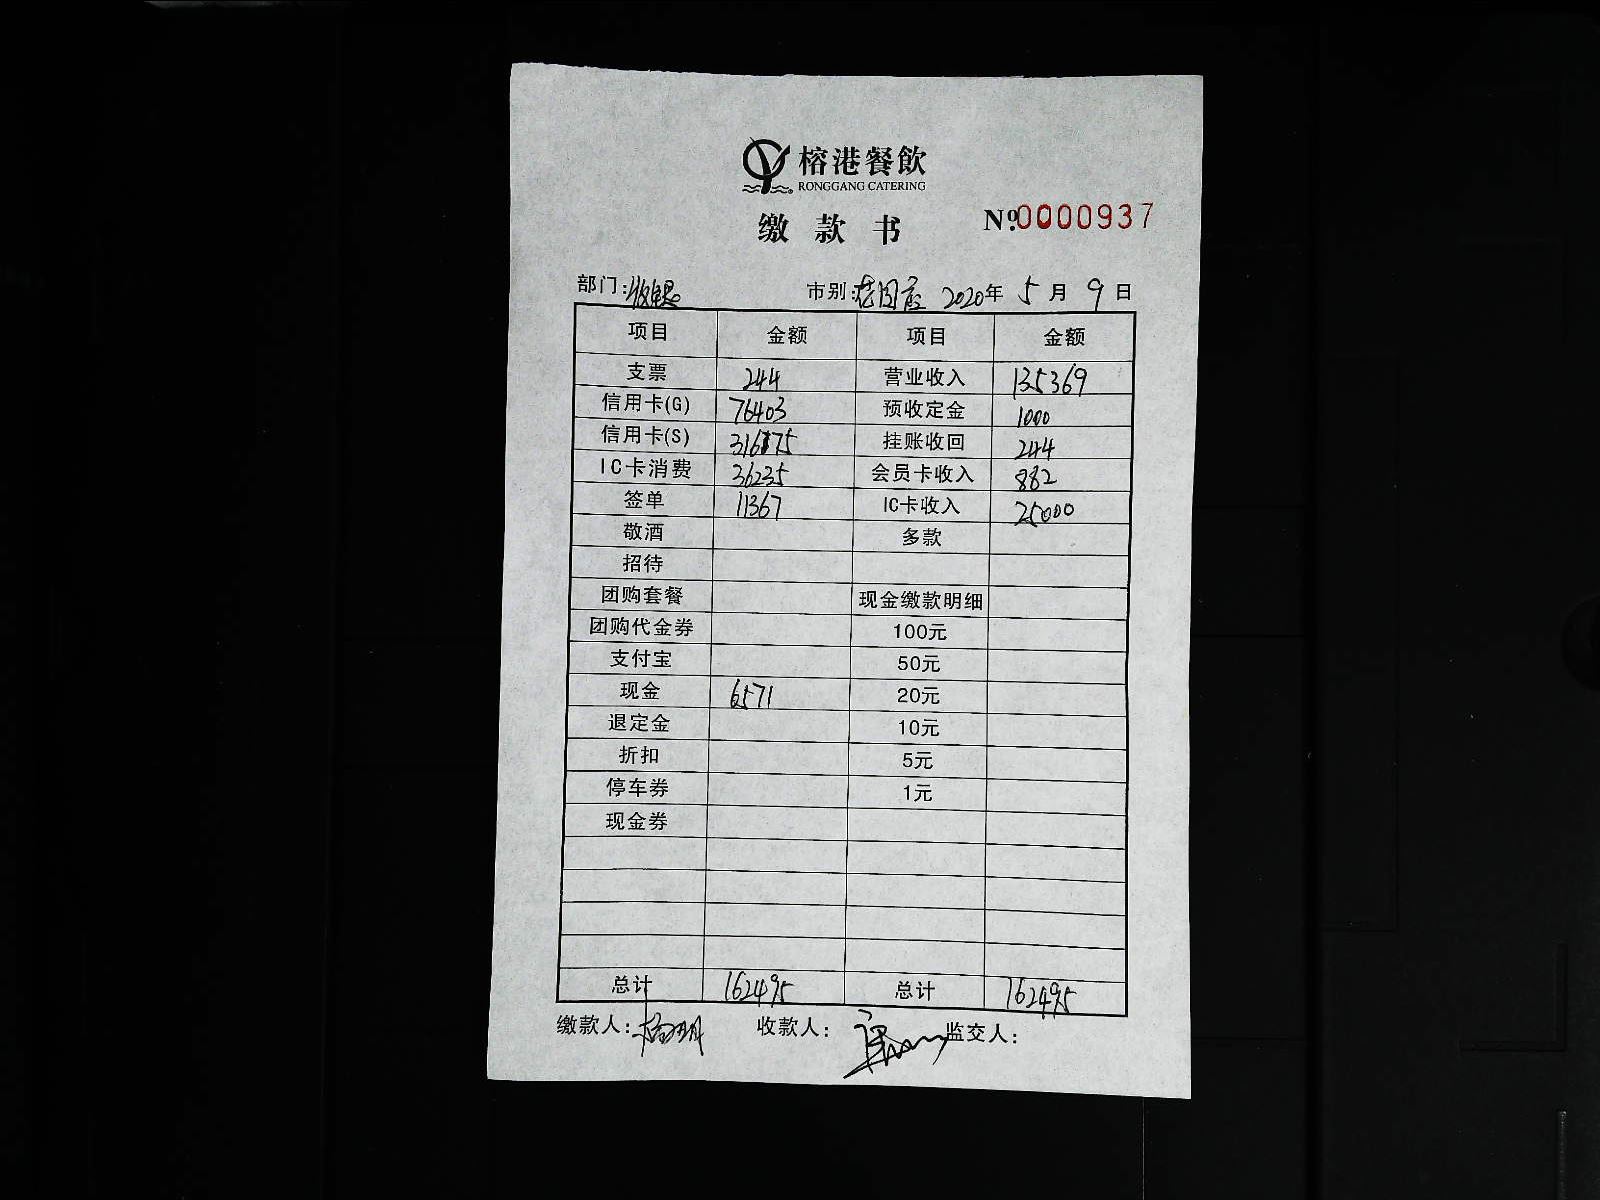 榕港餐飲
RONGGANG CATERING
缴款书 Nº.0000937
部门:收银 市别:花园店 2020年5月9日
项目 金额 项目 金额
支票 244 营业收入 135369
信用卡(G) 76403 预收定金 1000
信用卡(S) 31675 挂账收回 244
IC卡消费 36235 会员卡收入 882
签单 11367 IC卡收入 25000
敬酒 多款
招待
团购套餐 现金缴款明细
团购代金券 100元
支付宝 50元
现金 6571 20元
退定金 10元
折扣 5元
停车券 1元
现金券
总计 162495 总计 162495
缴款人: 收款人: 监交人: